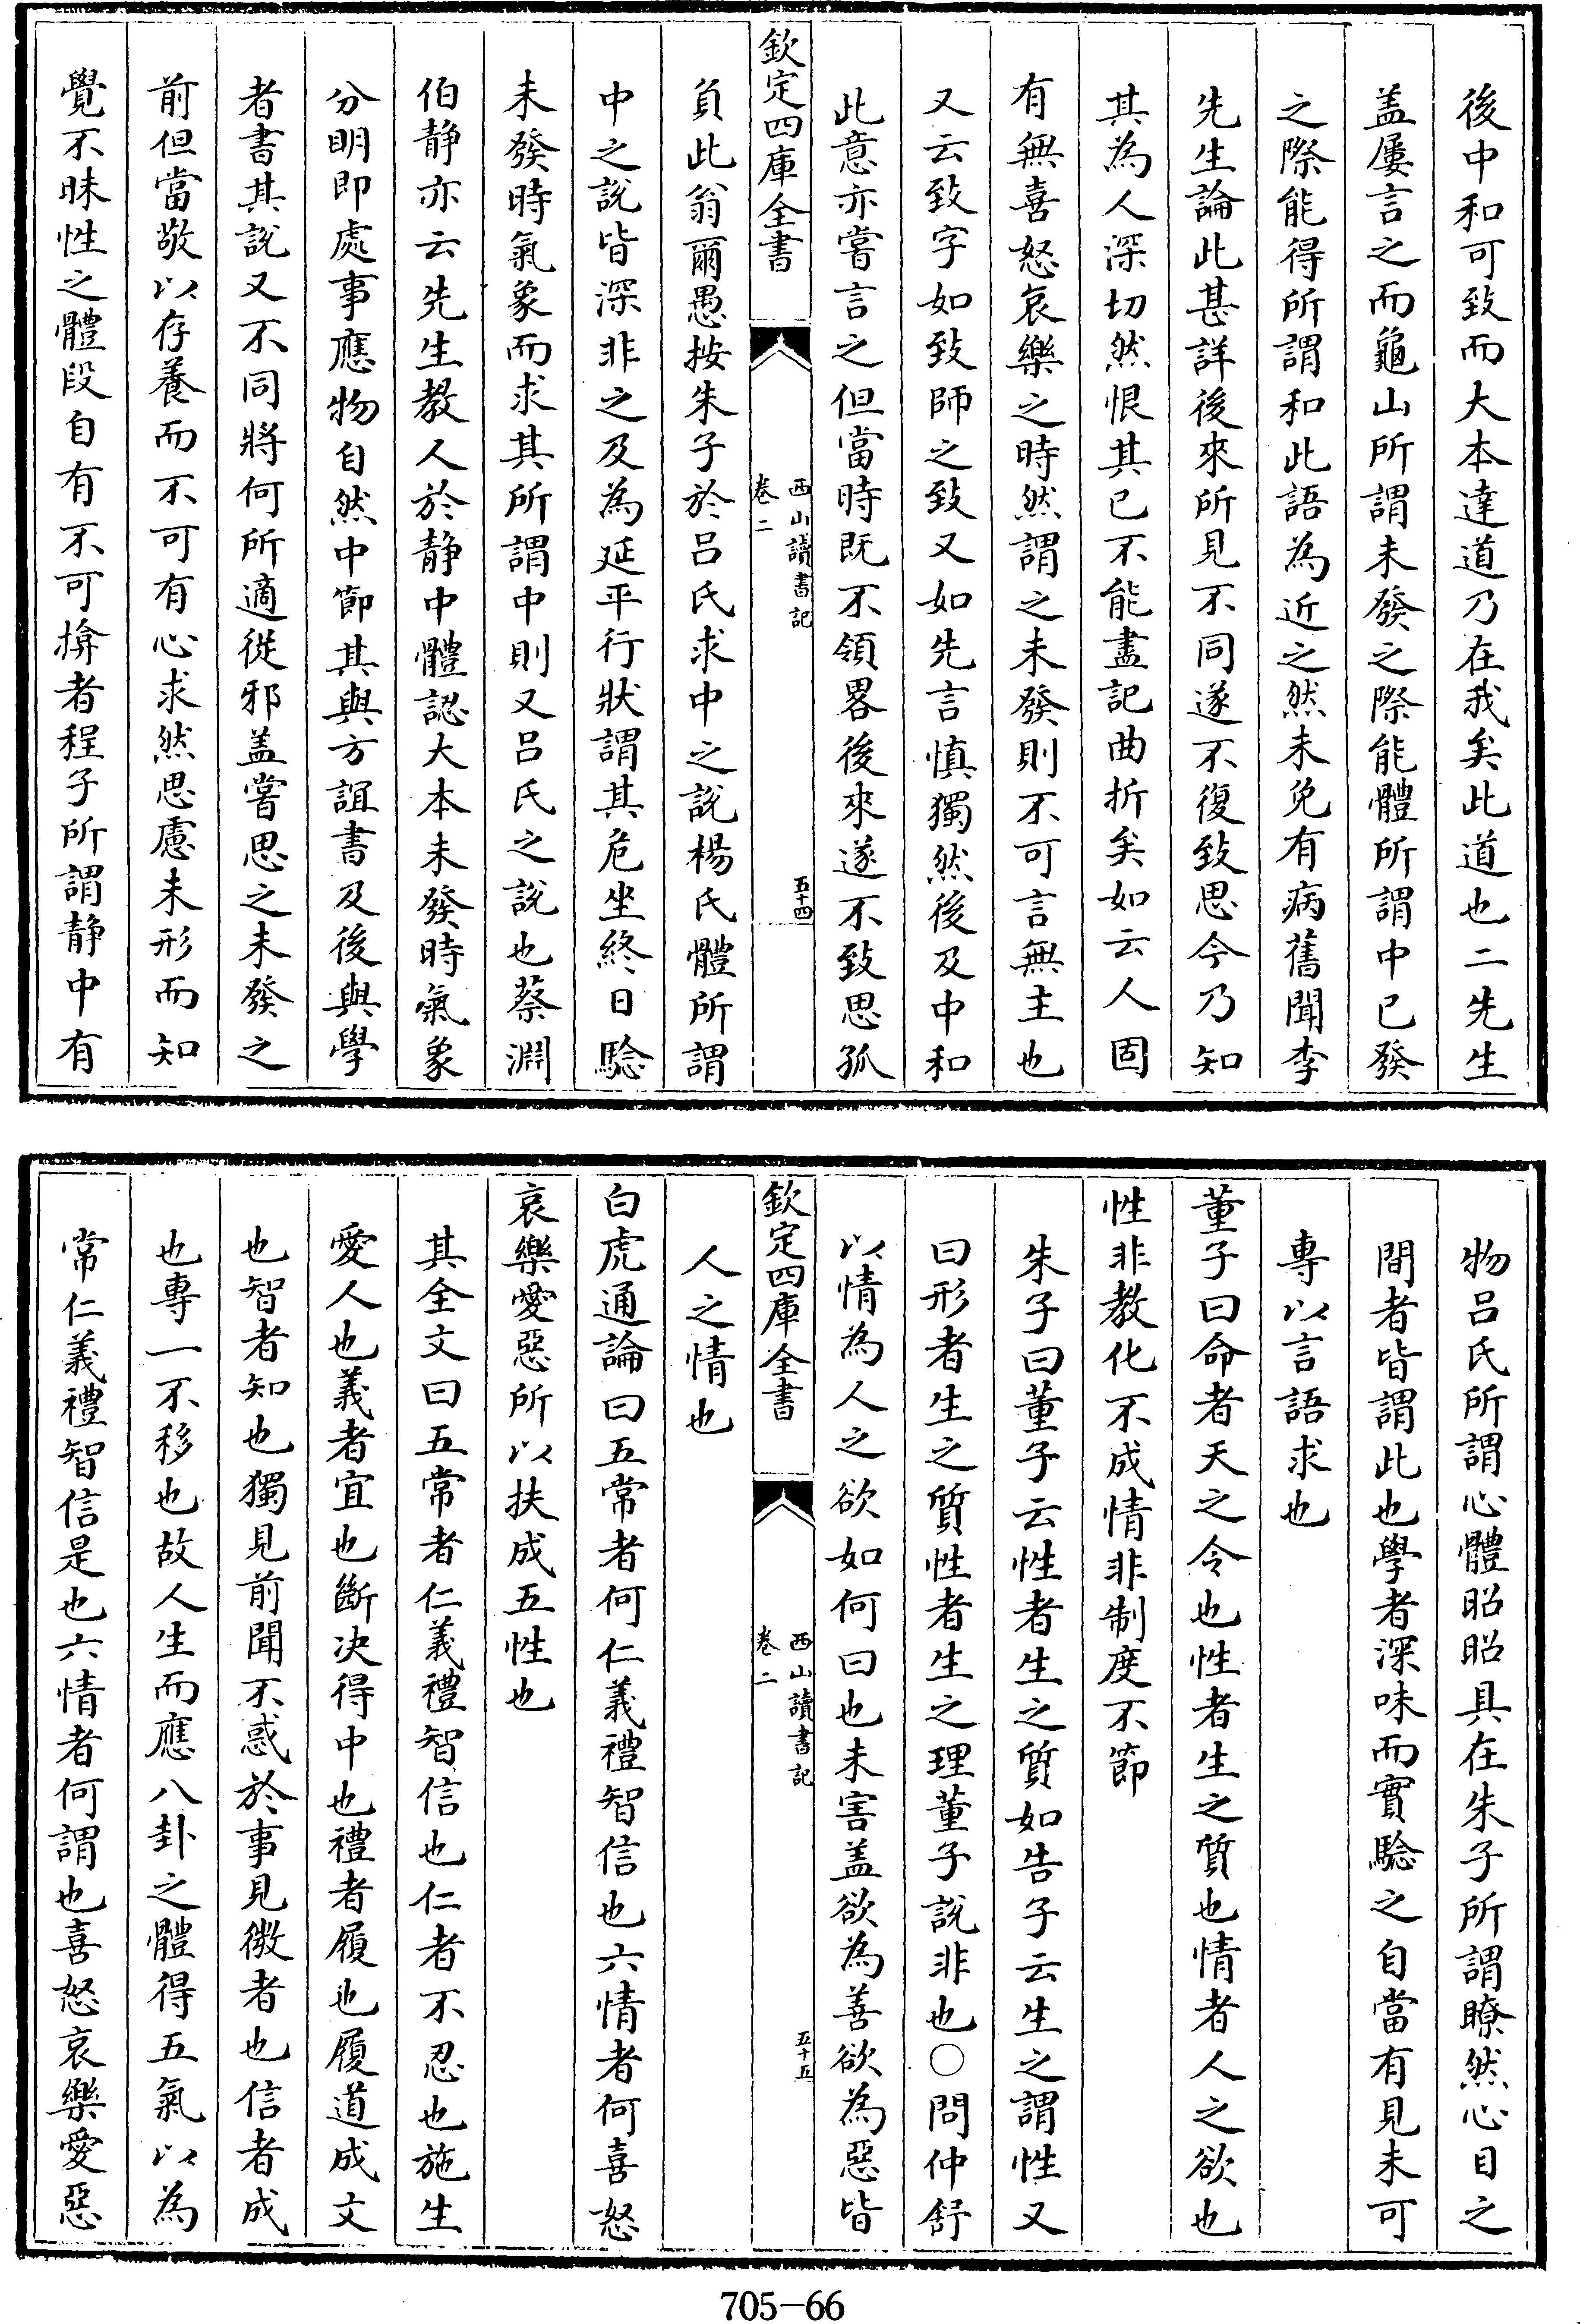 後中和可致而大本達道乃在我矣此道也二先生
盖屢言之而龜山所謂未發之際能體所謂中已發
之際能得所謂和此語為近之然未免有病舊聞李
先生論此甚詳後來所見不同遂不復致思今乃知
其為人深切然恨其已不能盡記曲折矣如云人固
有無喜怒哀樂之時然謂之未發則不可言無主也
又云致字如致師之致又如先言慎獨然後及中和
此意亦嘗言之但當時既不領畧後來遂不致思孤
欽定四庫全書
西山讀書記
卷二
五十四
負此翁爾愚按朱子於呂氏求中之說楊氏體所謂
中之說皆深非之及為延平行狀謂其危坐終日驗
未發時氣象而求其所謂中則又呂氏之說也蔡淵
伯静亦云先生教人於静中體認大本未發時氣象
分明即處事應物自然中節其與方誼書及後與學
者書其說又不同將何所適從邪盖嘗思之未發之
前但當敬以存養而不可有心求然思慮未形而知
覺不昧性之體段自有不可揜者程子所謂静中有
物呂氏所謂心體昭昭具在朱子所謂瞭然心目之
間者皆謂此也學者深味而實驗之自當有見未可
專以言語求也
董子曰命者天之令也性者生之質也情者人之欲也
性非教化不成情非制度不節
朱子曰董子云性者生之質如告子云生之謂性又
曰形者生之質性者生之理董子說非也○問仲舒
以情為人之欲如何曰也未害盖欲為善欲為惡皆
欽定四庫全書
西山讀書記
卷二
五十五
人之情也
白虎通論曰五常者何仁義禮智信也六情者何喜怒
哀樂愛惡所以扶成五性也
其全文曰五常者仁義禮智信也仁者不忍也施生
愛人也義者宜也斷决得中也禮者履也履道成文
也智者知也獨見前聞不惑於事見微者也信者成
也專一不移也故人生而應八卦之體得五氣以為
常仁義禮智信是也六情者何謂也喜怒哀樂愛惡
705-66